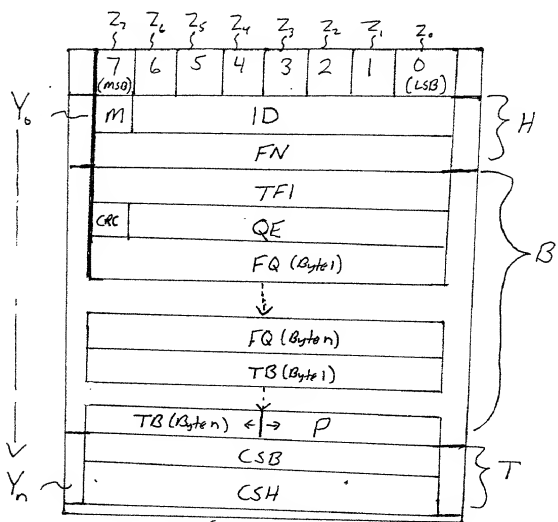 Z₇ Z₆ Z₅ Z₄ Z₃ Z₂ Z₁ Z₀
7 6 5 4 3 2 1 0
(MSB) (LSB)
Y₀ M ID H
FN
TFI
CRC QE B
FQ (Byte1)
FQ (Byte n)
TB (Byte1)
TB (Byte n) P
CSB T
Yₙ CSH